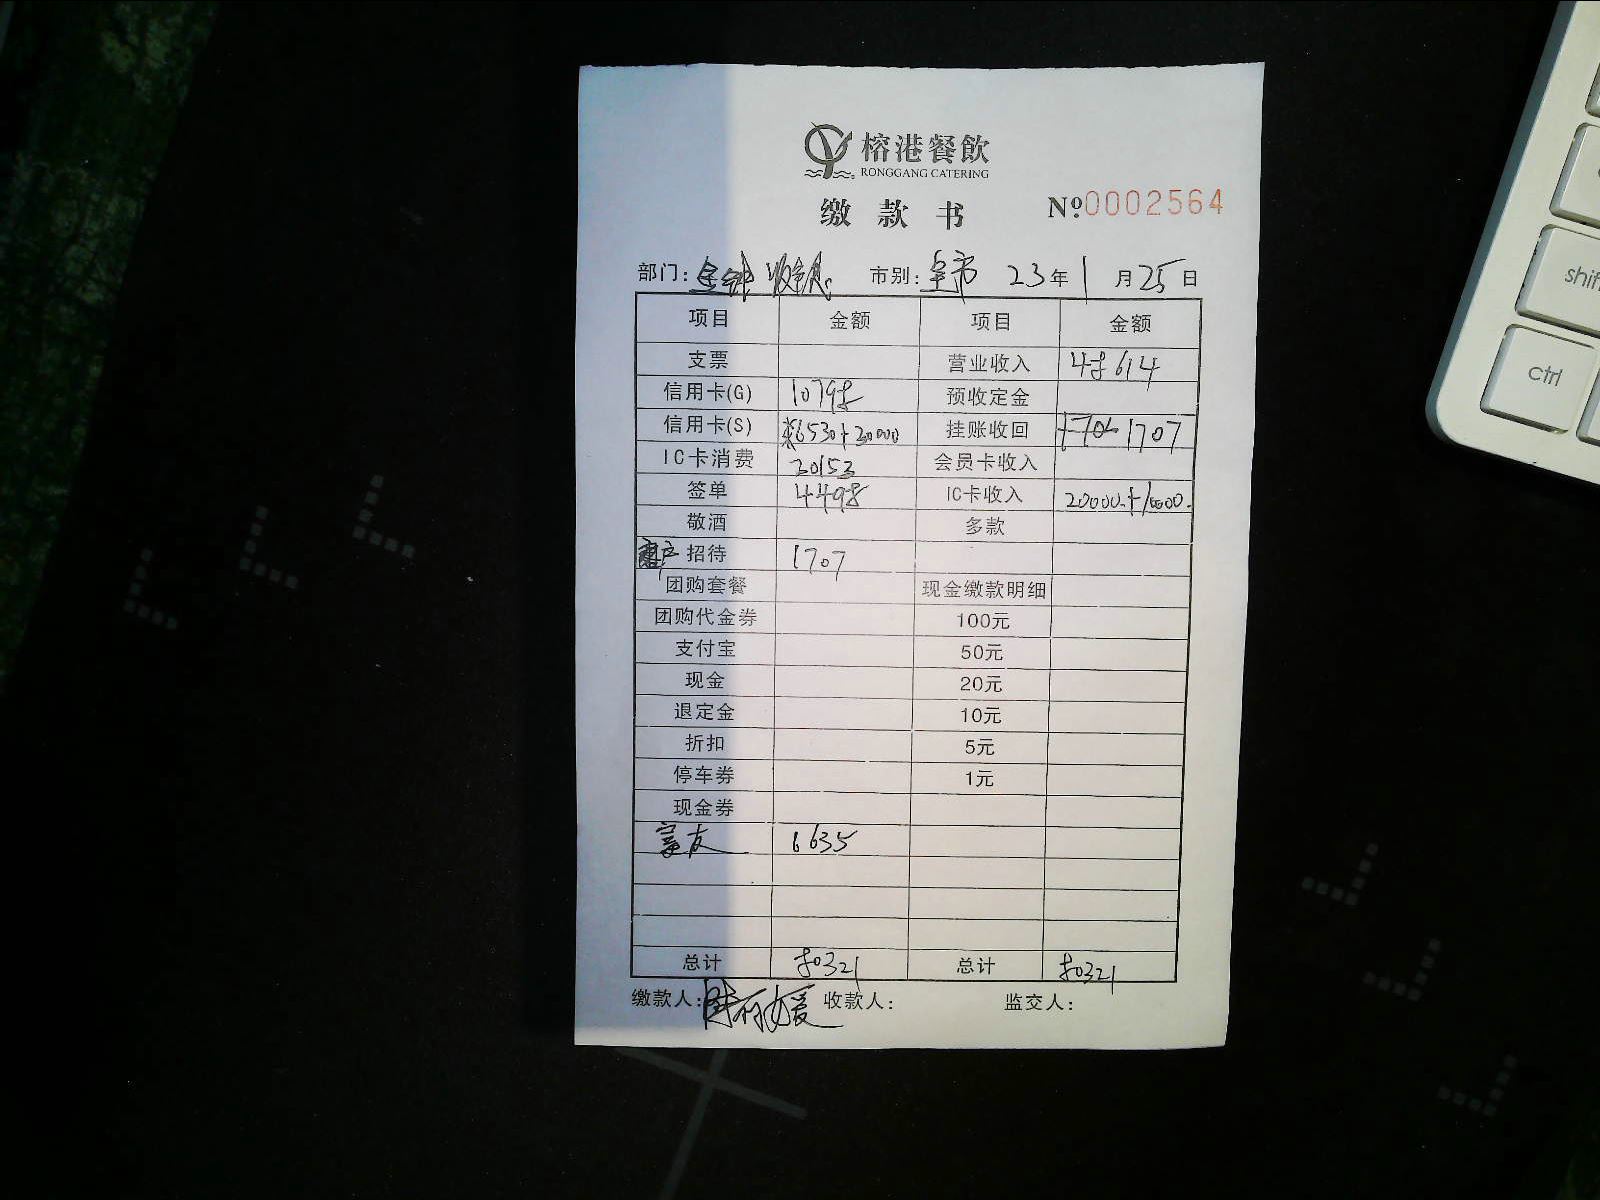 榕港餐飲
RONGGANG CATERING
缴款书 №0002564
部门: 市别: 全市 23年1月25日
项目 金额 项目 金额
支票 营业收入 48614
信用卡(G) 10798 预收定金
信用卡(S) 6530+30000 挂账收回 1707
IC卡消费 20153 会员卡收入
签单 4498 IC卡收入 20000.+10000.
敬酒 多款
招待 1707
团购套餐 现金缴款明细
团购代金券 100元
支付宝 50元
现金 20元
退定金 10元
折扣 5元
停车券 1元
现金券
富友 6635
总计 80321 总计 80321
缴款人: 收款人: 监交人:
shift
ctrl